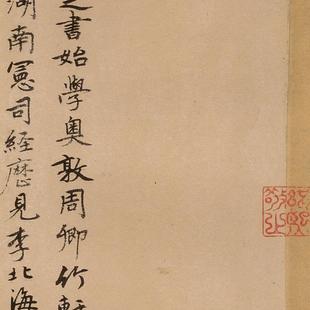 之書始學奥敦周卿竹軒
湖南憲司經歷見李北海